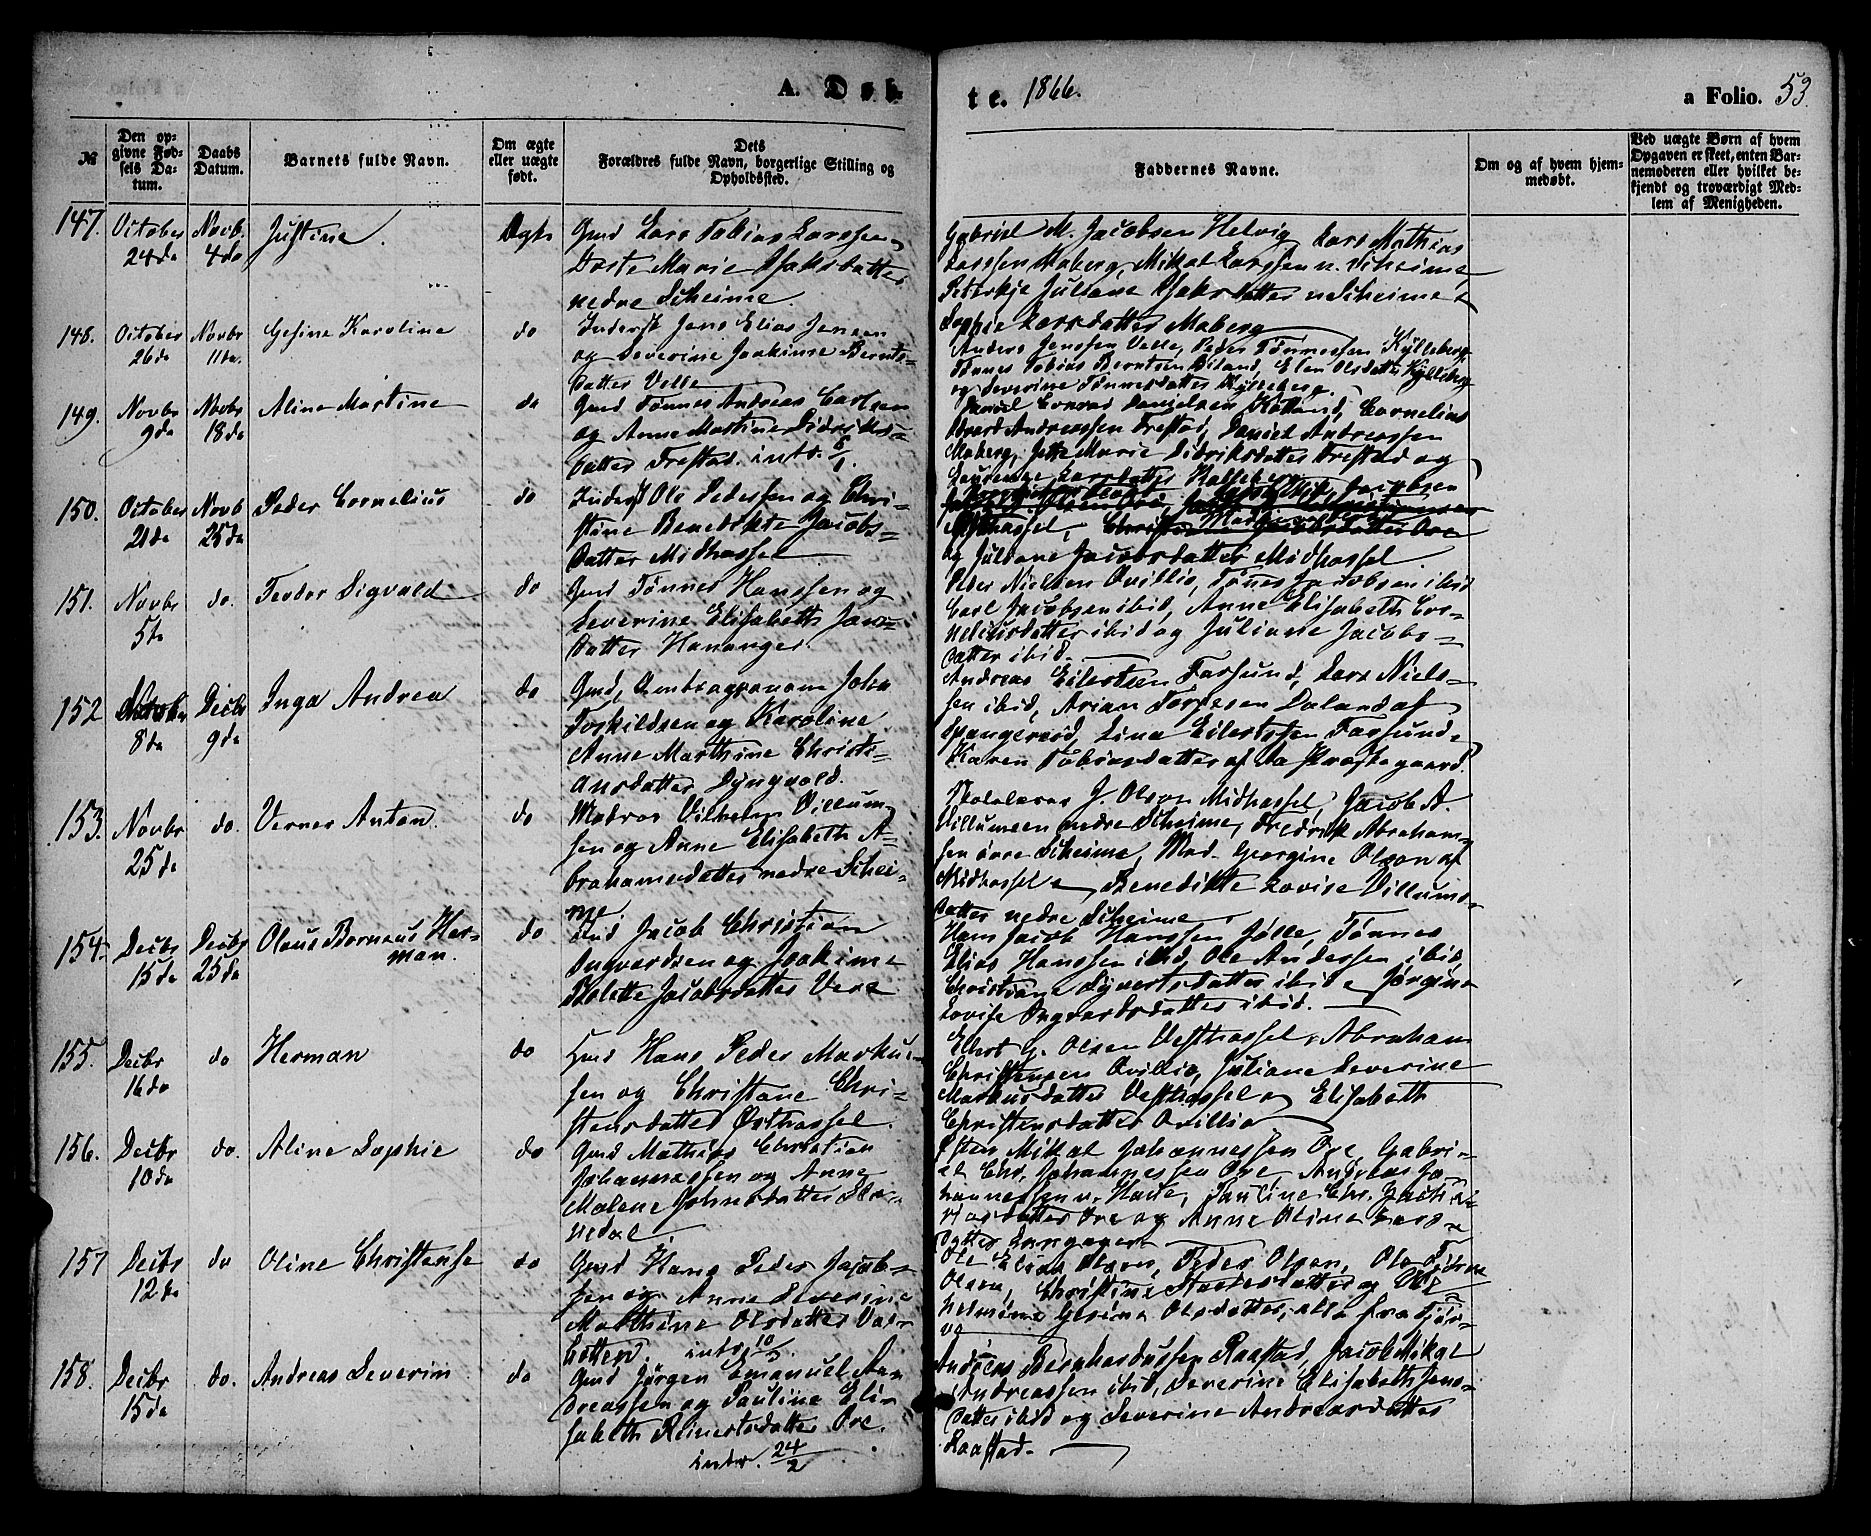 A. Døb-
te. 1866.
a Folio. 53.
№
Den op-
givne Fød-
sels Da-
tum.
Daabs
Datum.
Barnets fulde Navn.
Om ægte
eller uægte
født.
Dets
Forældres fulde Navn, borgerlige Stilling og
Opholdssted.
Faddernes Navne.
Om og af hvem hjem-
medøbt.
Ved uægte Børn af hvem
Opgaven er skeet, enten Bar-
nemoderen eller hvilket be-
kjendt og troværdigt Med-
lem af Menigheden.
147. October 24de Novb. 4de Justine. Ægte
Gmd Lars Tobias Larssen
Dorte Marie Isaksdatter
nedre Scheime
Gabriel M. Jacobsen Helvig, Lars Mathias
Larssen Maberg, Mikal Larssen n. Scheime,
Juliane Isaksdatter n Scheime
Sophie Larsdatter Maberg
148. October 26de Novbr 11te. Gesine Karoline do
Inderst Jens Elias Jensen
og Severine Joakime Bernts-
datter Velle
Anders Jenssen Velle, Peder Tønnessen Kylleberg
Tønnes Tobias Berntsen Biland, Elen Olsdatter Kylleberg
og Severine Tønnesdatter Kylleberg.
149. Novbr 9de Novbr 18de Aline Martine do
Gmd Tønnes Andreas Carlsen
og Anne Martine Didriks-
datter Trestad. intr. 6/1.
Daniel Conrad Danielsen Kolland, Cornelius
Edvard Andreassen Trestad, Daniel Andreassen
Maberg, Jette Marie Didriksdatter Trestad og
Larsdatter
150. October 21de Novb 25de Peder Cornelius do
Inderst Ole Pedersen og Chri-
stine Benedikte Jacobs-
datter Midhassel
Midhassel,
og Juliane Jacobsdatter Midhassel
151. Novbr 5te do. Teodor Sigvald do
Gmd Tønnes Hanssen og
Severine Elisabeth Jans-
datter Hananger.
Peder Nielsen Ovillio, Tønnes Jacobsen ibid
Carl Jacobsen ibid, Anne Elisabeth Cor-
neliusdatter ibid og Juliane Jacobs-
datter ibid.
152 8de Decbr 9de Inga Andrea do
Gmd, John
Torkildsen og Karoline
Anne Marthine Christi-
ansdatter Dyngvold.
Andreas Eilertsen Farsund, Lars Niels-
sen ibid, Arian Torgesen Daland af
Spangereid, Lina Eilertssen Farsund
Karen Tobiasdatter af
153. Novbr 25de do. Verner Anton. do
Matros Vilhelm Villum-
sen og Anne Elisabeth A-
brahamsdatter nedre Schei-
me.
Skolelærer J. Olsen Midhassel, Jacob A.
Villumsen nedre Scheime, Fredrik Abraham-
sen øvre Scheime, Mad. Georgine Olsen af
Midhassel Benedikte Lovise Villums-
datter nedre Scheime.
154. Decbr 15de Decbr 25de Olaus Berneus Her-
man. do
Jacob Christian
Ingvardsen og Joakime
Tolette Jacobsdatter Vere
Hans Jacob Hanssen Jølle, Tønnes
Elias Hanssen ibid, Ole Andersen ibid
Christiane Syvertsdatter ibid Jørgine
Lovise Ingvardsdatter ibid.
155. Decbr 16de do Herman do
Gmd Hans Peder Marku-
sen og Christane Chri-
stensdatter Østhassel.
Eilert G. Olsen Vesthassel, Abraham
Christensen Ovillio, Juliane Severine
Markusdatter Vesthassel Elisabeth
Christensdatter Ovillio
156. Decbr 10de do. Aline Sophie do
Gmd Mathias Christian
Johannessen og Anne
Malene Johnsdatter
Mikal Johannessen Ore, Gabri-
el Chr. Johannessen Ore, Andreas Jo-
hannessen
Ore og Anne Oline Lars-
datter
157 Decbr 12te do Oline Christense do
Gmd Hans Peder Jacob-
sen og Anne Severine
Mathine Olsdatter
intr 10/
Ole Elias Olsen, Peder Olsen, Ole
Olsen, Christine
Gesine Olsdatter, alle fra
158. Decbr 15de do. Andreas Severin do
Gmd Jørgen Emanuel An-
dreassen og Pauline Eli-
sabeth Reinertsdatter Ore.
intr. 24/2
Andreas Bernhardussen Raastad, Jacob Mikal
Andreassen ibid, Severine Elisabeth Jens-
datter ibid og Severine Andreasdatter
Raastad.